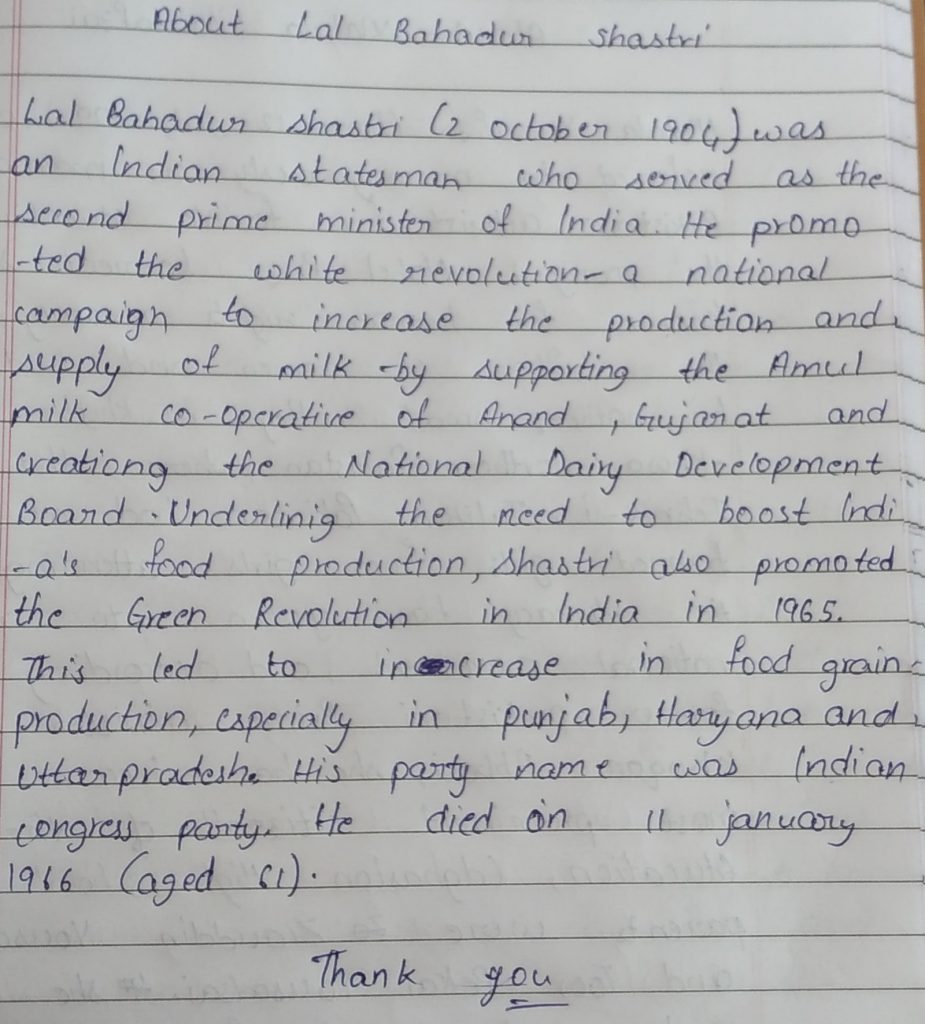 About Lal Bahadur Shastri
Lal Bahadur Shastri (2 October 1904) was
an Indian statesman who served as the
second prime minister of India. He promo
-ted the white revolution- a national
campaign to increase the production and
supply of milk -by supporting the Amul
milk co-operative of Anand , Gujarat and
creationg the National Dairy Development
Board. Underlinig the need to boost Indi
-a's food production, Shastri also promoted
the Green Revolution in India in 1965.
This led to increase in food grain
production, especially in punjab, Haryana and
Uttar pradesh. His party name was Indian
congress party. He died on 11 january
1966 (aged 61).
Thank you